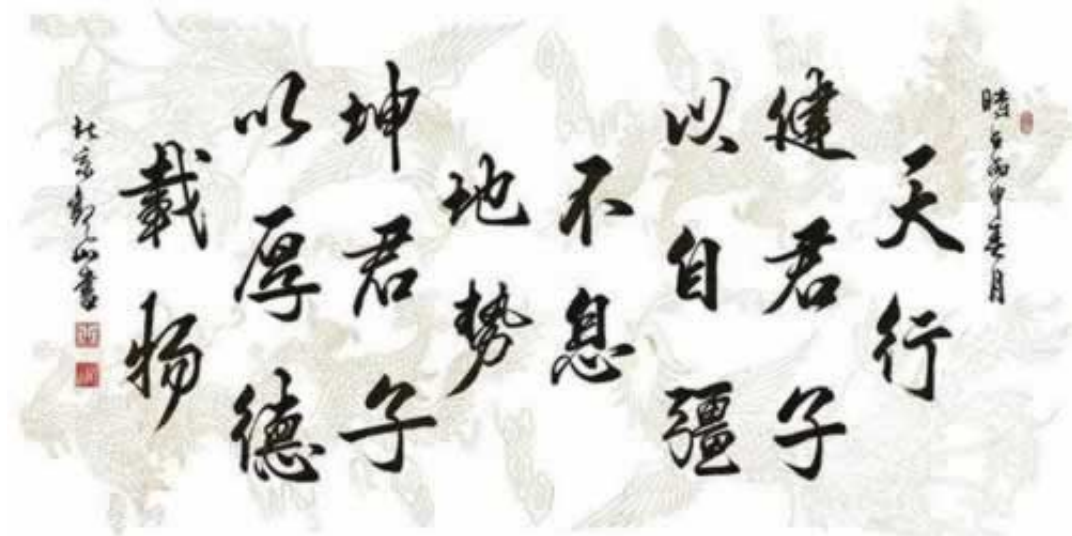 时在丙申春月
天行
健君子
以自疆
不息
地势
坤君子
以厚德
载物